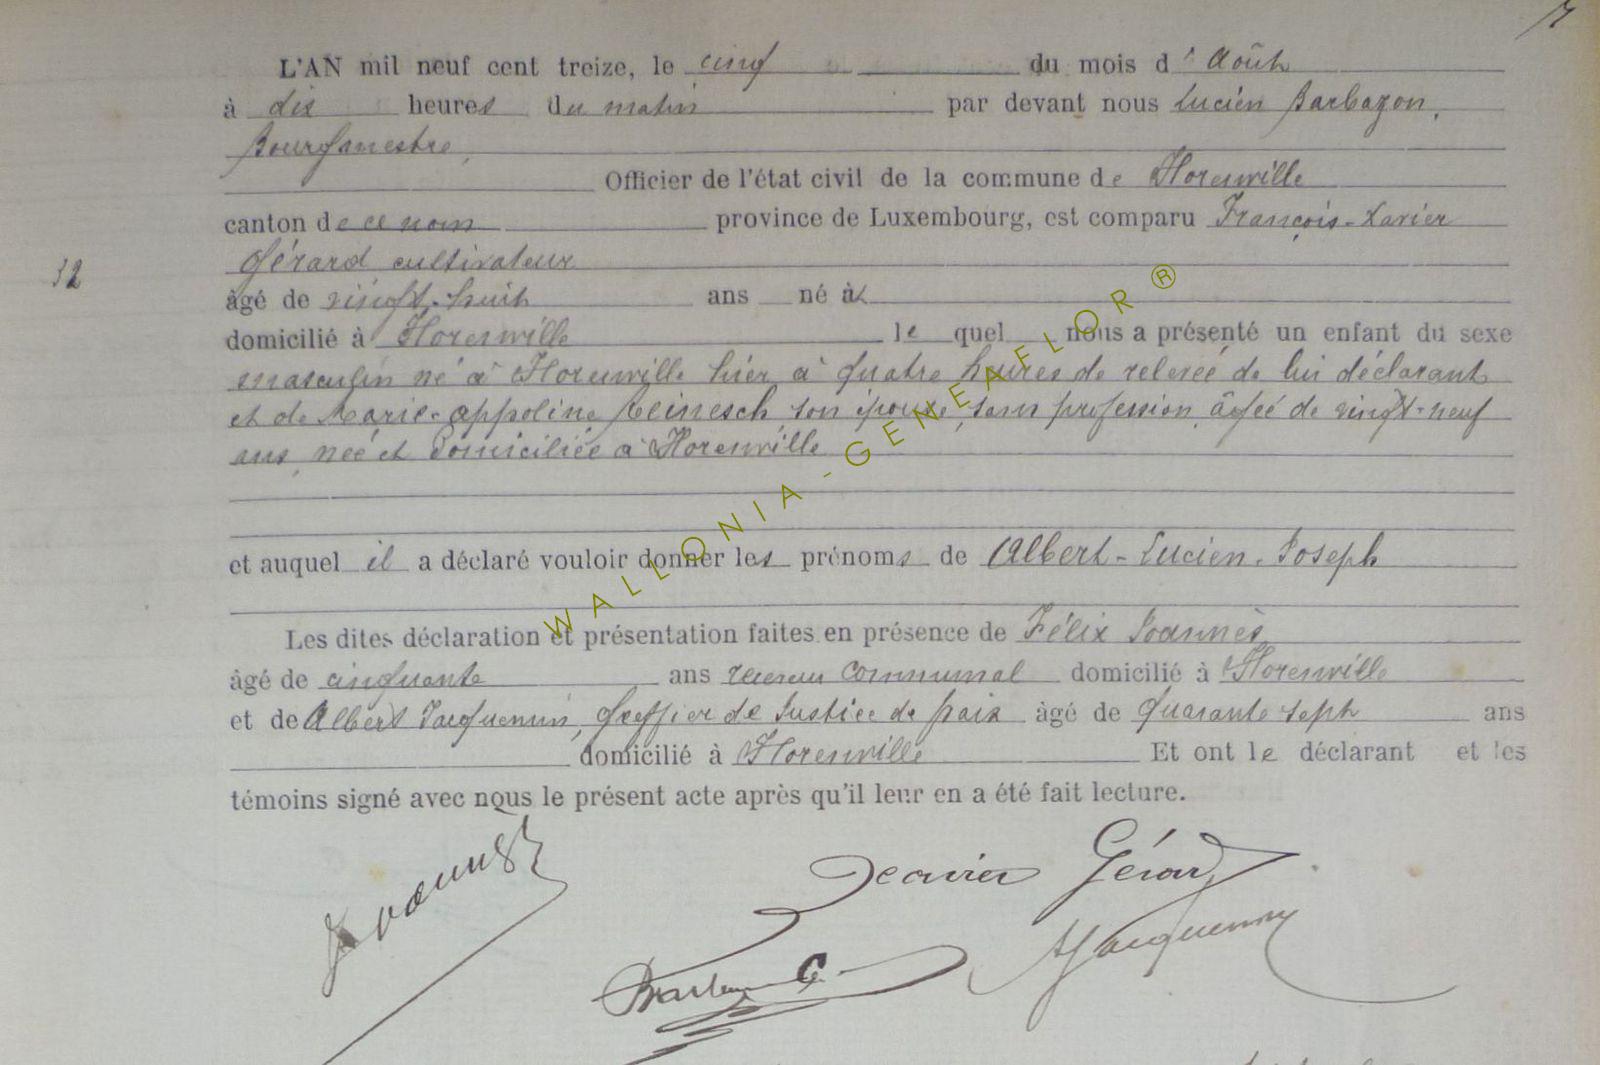 L'AN mil neuf cent treize, le cinq du mois d'Août
à dix heures du matin par devant nous Lucien Barbazon,
Bourgmestre,
Officier de l'état civil de la commune de Florenville
canton de ce nom province de Luxembourg, est comparu François-Xavier
Gérard cultivateur
32
âgé de vingt-huit ans né à
domicilié à Florenville le quel nous a présenté un enfant du sexe
masculin né à Florenville hier à quatre heures de relevée de lui déclarant
et de Marie-Appoline Reinesch son épouse, sans profession, âgée de vingt-neuf
ans, née et domiciliée à Florenville
et auquel il a déclaré vouloir donner les prénoms de Albert-Lucien-Joseph
Les dites déclaration et présentation faites en présence de Félix Joannès
âgé de cinquante ans receveur communal domicilié à Florenville
et de Albert Jacquemin, Greffier de Justice de paix âgé de quarante sept ans
domicilié à Florenville Et ont le déclarant et les
témoins signé avec nous le présent acte après qu'il leur en a été fait lecture.
Joannès
Xavier Gérard
AJacquemin
WALLONIA-GENEAFLOR®